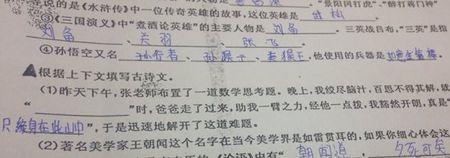 在说的是《水浒传》中一位传奇英雄的故事,这位英雄是武松
③《三国演义》中"煮酒论英雄"的主要人物是刘备
三英战吕布,"三英"是指
刘备、关羽、张飞。
④孙悟空又名孙行者、孙猴子、美猴王,他使用的兵器是如意金箍棒
▲根据上下文填写古诗文。
(1)昨天下午,张老师布置了一道数学思考题。晚上,我绞尽脑汁,百思不得其解,就
"时,爸爸走了过来,助我一臂之力,经他一点拨,我豁然开朗,真是"
只缘身在此山中",于是迅速地解开了这道难题。
(2)著名美学家王朝闻这个名字在当今美学界是如雷贯耳的,如果你细心体会这
《论语》中有"朝闻道,夕死可矣